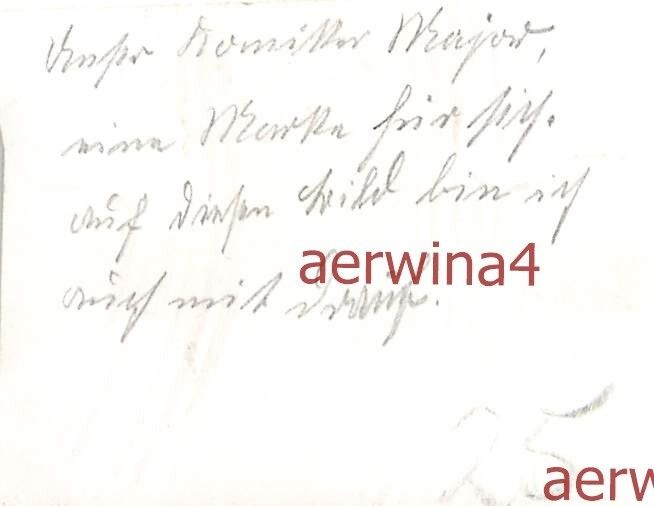 Unser Komiker Major,
eine Marke für sich.
auf diesen Bild bin ich
aerwina4
auch mit drauf.
25
aerw